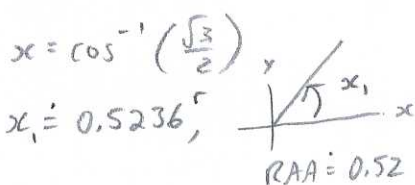 x = cos⁻¹ (√3/2)
x₁ ≐ 0.5236ʳ,
y
x₁
x
RAA ≐ 0.52